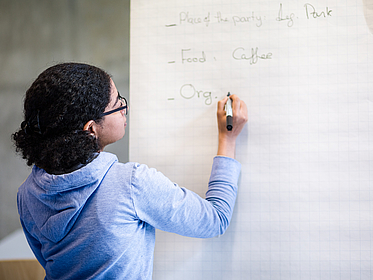 _ Place of the party. Park
_ Food. Caffee
_ Org.